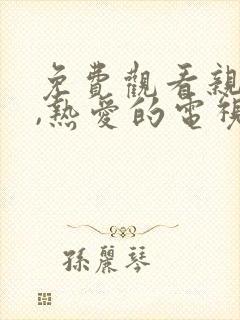 免費觀看親
,熱愛的電視
孫麗琴